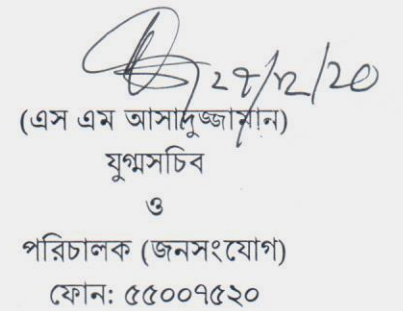 ২৭/১২/২০
(এস এম আসাদুজ্জামান)
যুগ্মসচিব
ও
পরিচালক (জনসংযোগ)
ফোন: ৫৫০০৭৫২০